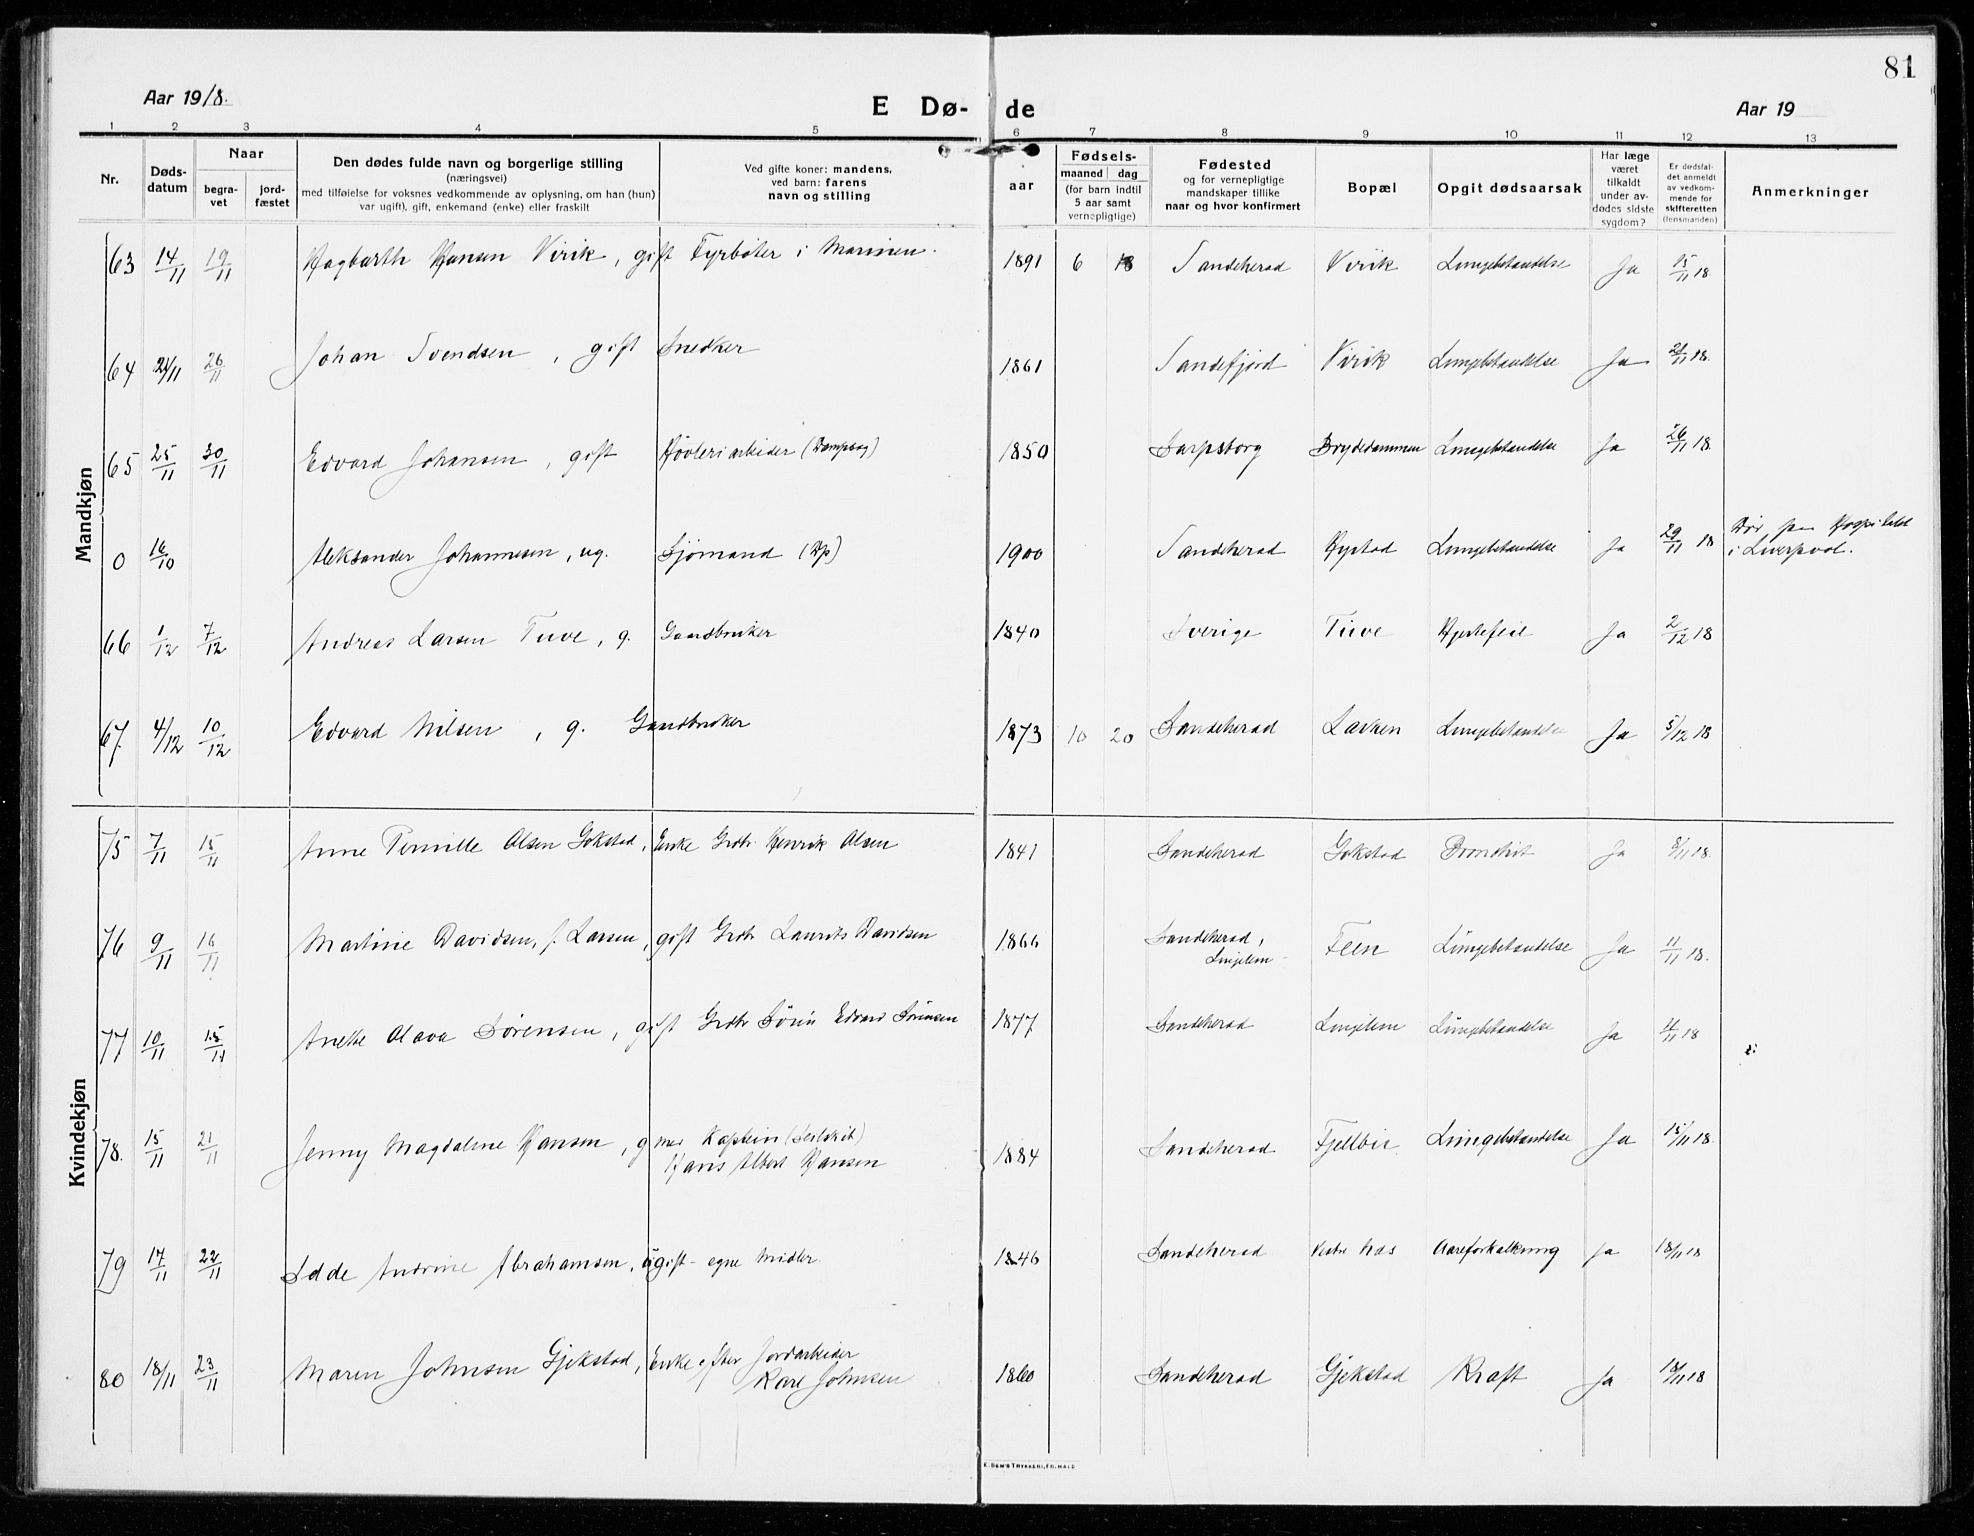 81
Aar 1918.
E Dø- de
Aar 19
1 2 3 4 5 6 7 8 9 10 11 12 13
Nr.
Døds-
datum
Naar
begra-
vet
jord-
fæstet
Den dødes fulde navn og borgerlige stilling
(næringsvei)
med tilføielse for voksnes vedkommende av oplysning, om han (hun)
var ugift), gift, enkemand (enke) eller fraskilt
Ved gifte koner: mandens,
ved barn: farens
navn og stilling
Fødsels-
aar
maaned dag
(for barn indtil
5 aar samt
vernepligtige)
Fødested
og for vernepligtige
mandskaper tillike
naar og hvor konfirmert
Bopæl
Opgit dødsaarsak
Har læge
været
tilkaldt
under av-
dødes sidste
sygdom?
Er dødsfal-
det anmeldt
av vedkom-
mende for
skifteretten
(lensmanden)
Anmerkninger
Mandkjøn
63 14/11 19/11 Hagbarth Hansen Virik, gift Fyrbøter i Marinen. 1891 6 18 Sandeherad Virik Lungebetændelse Ja 15/11 18
64 21/11 26/11 Johan Svendsen, gift Snedker 1861 Sandefjord Virik Lungebetændelse Ja 21/11 18.
65 25/11 30/11 Edvard Johansen, gift Høvleriarbeider (Dampsag) 1850 Sarpsborg Brydedammen Lungebetændelse Ja 26/11 18.
0 16/10 Aleksander Johannesen, ug. Sjømand 1900 Sandeherad Hystad Lungebetændelse Ja 29/11 18 Død paa Hospitalet
i Liverpool.
66 1/12 7/12 Andreas Larsen Tuve, g. Gaardbruker 1840 Sverige Tuve Hjertefeil Ja 2/12 18
67. 4/12 10/12 Edvard Nilsen, g. Gaardbruker 1873 10 20 Sandeherad Lasken Lungebetændelse Ja 5/12 18
Kvindekjøn
75 7/11 15/11 Anne Pernille Olsen Gokstad, Enke Grdbr. Henrik Olsen 1841 Sandeherad Gokstad Bronchit Ja 8/11 18.
76 9/11 16/11 Martine Davidsen, f. Larsen, gift Grdbr Laurits Davidsen 1866 Sandeherad, Feen Lungebetændelse Ja 11/11 18.
77 10/11 15/11 Anette Olava Sørensen, gift Grdbr Søren Edvard Sørensen 1877 Sandeherad Lungebetændelse Ja 11/11 18
78. 15/11 21/11 Jenny Magdalene Hansen, g med Kaptein (Seilskib)
Hans Albert Hansen 1884 Sandeherad Fjellvik Lungebetændelse Ja 15/11 18.
79 17/11 22/11 Idde Andrine Abrahamsen, ugift - egne midler. 1846 Sandeherad Vestre Næs Aareforkalkning Ja 18/11 18
80 18/11 23/11 Maren Johnsen Gjekstad, Enke efter Jordarbeider
Karl Johnsen 1860 Sandeherad Gjekstad Kræft Ja 18/11 18
E. SEM'S TRYKKERI, FR.HALD